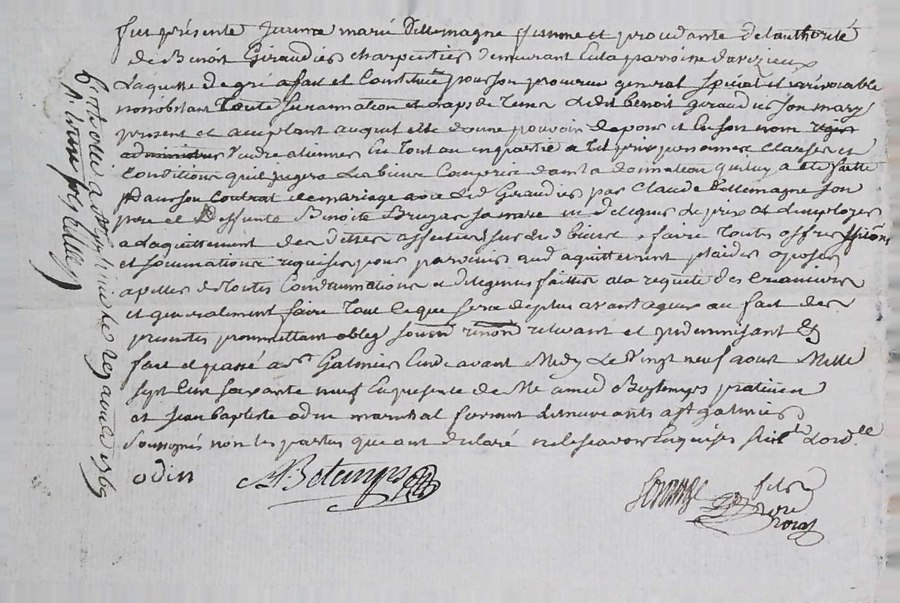 fut présente Jeanne marie Dellemagne femme et procedante de l'authorité
de Benoit Giraudier charpentier demeurant en la parroisse d'avezieux
Laquelle de gré a fait et Constitué pour son procureur general special et irrévocable
nonobstant Toute surannation et Laps de Tems Ledit benoit giraudier son mary
present et acceptant auquel elle donne pouvoir de pour et En son nom regir
administrer Vendre aliener En Tout ou en partie a tel prix personnes Clauses et
Conditions quil jugera Les biens Compris dans la donnation qui luy a été faitte
Dans son Contrat de mariage avec led Giraudier par Claude Dellemagne Son
pere et Deffunte Benoite sa mere en deleguer Le prix et L'employer
a Lacquittement des dettes affectées sur lesd biens, faire Toutes offres
et sommations requises pour parvenir aud acquittement plaider oposer
apeller de toutes Condamnations et diligences faittes a la requete des Creanciers
et generalement faire Tout Ce que sera de plus avantageux au fait des
presentes promettant oblig soum renon relevant et indemnisant &
fait et passé a St Galmier Etude avant Midy Le Vingt neuf aout Mille
sept Cent soixante neuf En presence de Me amed Betemps praticien
et Jean Baptiste odin marechal ferrant demeurants a St galmier
soussignés non les parties qui ont declaré ne le scavoir Enquises
odin Betemps
Controllé a St galmier le 29 aout 1769